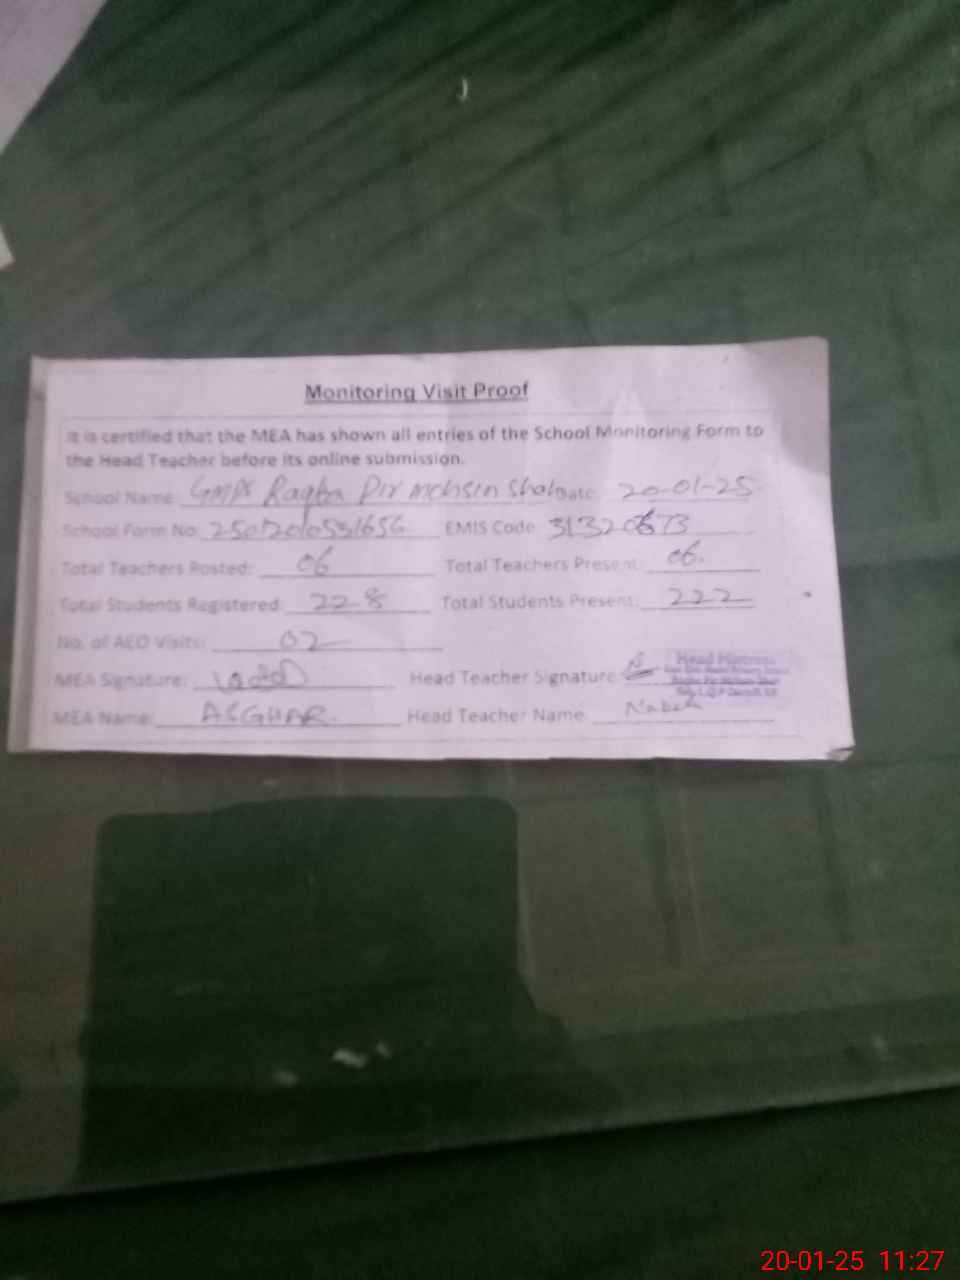 Monitoring Visit Proof
It is certified that the MEA has shown all entries of the School Monitoring Form to
the Head Teacher before its online submission.
School Name: GMPS Ragba Pir mohsin Shah Date: 20-01-25
School Form No: EMIS Code: 31320673
Total Teachers Posted: 06 Total Teachers Present: 06.
Total Students Registered: 228 Total Students Present: 222
No. of AEO Visits: 02
MEA Signature: Head Teacher Signature:
Head Mistress
MEA Name: ASGHAR Head Teacher Name
20-01-25 11:27